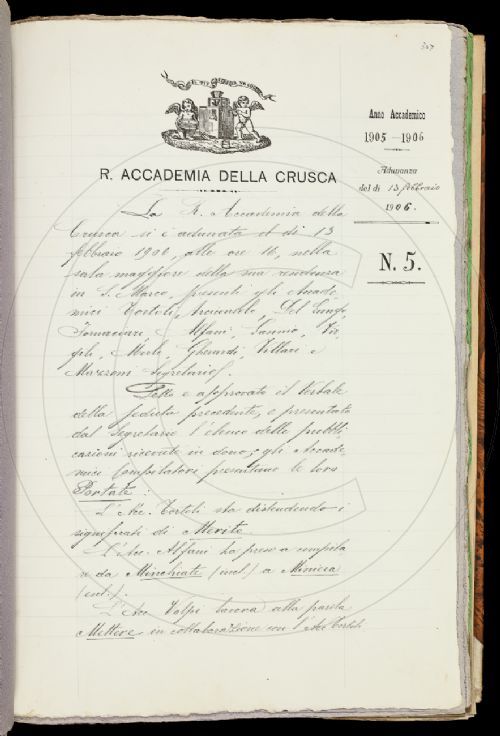 307
IL PIÙ BEL FIOR NE COGLIE
R. ACCADEMIA DELLA CRUSCA
Anno Accademico
1905-1906
Adunanza
del dì 13 febbraio
1906.
N. 5.
La R. Accademia della
Crusca si è adunata il dì 13
febbraio 1906, alle ore 16, nella
sala maggiore della sua residenza
in S. Marco, presenti gli Accade-
mici Tortoli, Del Lungo,
Fornaciari, Alfani, Vol-
pi, Gherardi, Villari e
Mazzoni Segretario.
Letto e approvato il Verbale
della seduta precedente, e presentato
dal Segretario l'elenco delle pubbli-
cazioni ricevute in dono; gli Accade-
mici Compilatori presentano le loro
Portate:
L'Acc. Tortoli sta distendendo i
significati di Merito
L'Acc. Alfani ha preso a compila-
re da Minchiate (incl.) a Miniera
(incl.).
L'Acc. Volpi lavora alla parola
Mettere in collaborazione con l'Acc. Tortoli